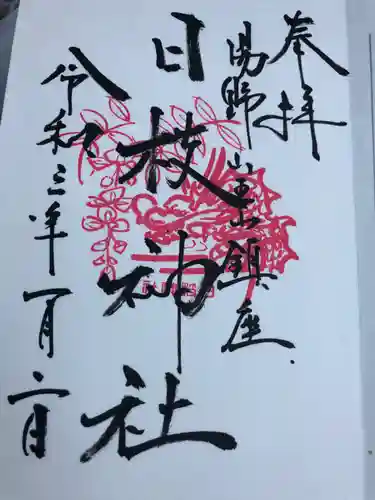 奉拝
湯野山王山鎮座
日枝神社
令和三年一月二日